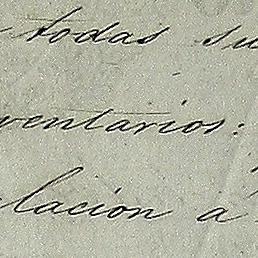 todas su
ventarios:
lacion á